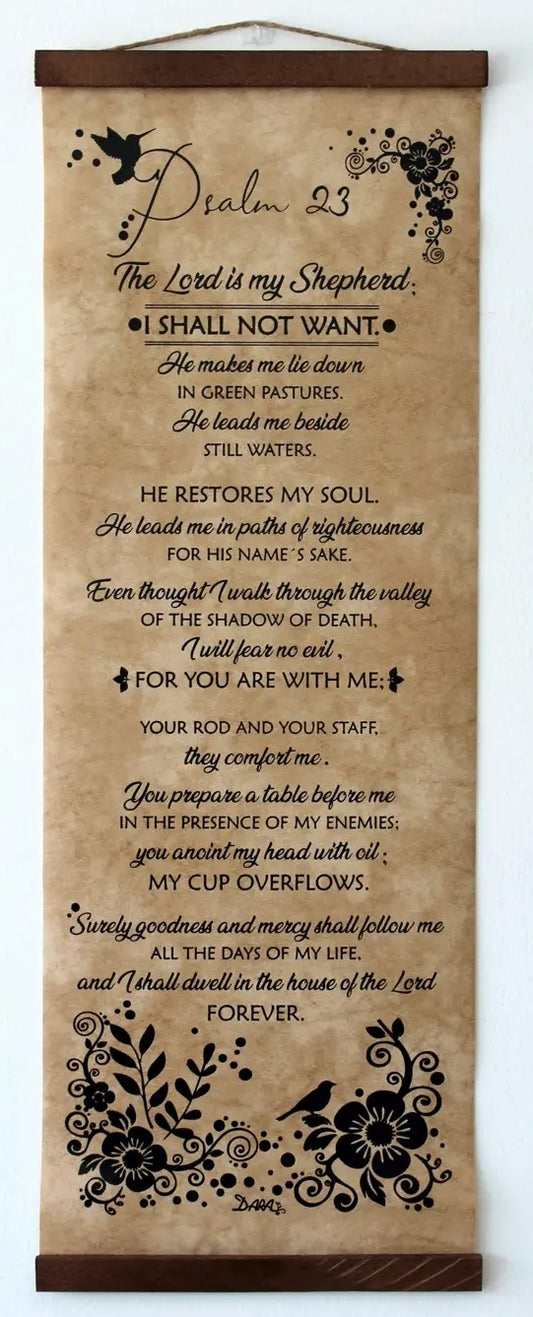 Psalm 23
The Lord is my Shepherd;
I SHALL NOT WANT.
He makes me lie down
IN GREEN PASTURES.
He leads me beside
STILL WATERS.
HE RESTORES MY SOUL.
He leads me in paths of righteousness
FOR HIS NAME´S SAKE.
Even thought I walk through the valley
OF THE SHADOW OF DEATH,
I will fear no evil,
FOR YOU ARE WITH ME;
YOUR ROD AND YOUR STAFF,
they comfort me.
You prepare a table before me
IN THE PRESENCE OF MY ENEMIES;
you anoint my head with oil;
MY CUP OVERFLOWS.
Surely goodness and mercy shall follow me
ALL THE DAYS OF MY LIFE,
and I shall dwell in the house of the Lord
FOREVER.
DARA